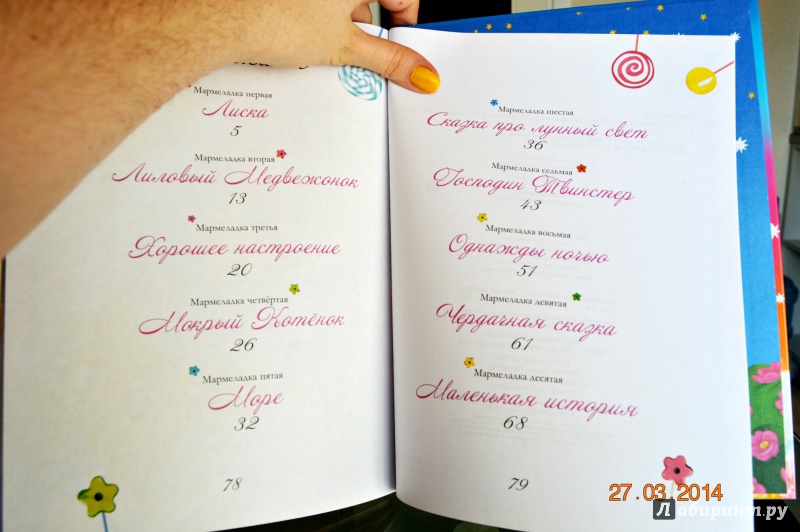 Мармеладка первая
Лиска
5
Мармеладка вторая
Лиловый Медвежонок
13
Мармеладка третья
Хорошее настроение
20
Мармеладка четвёртая
Мокрый Котёнок
26
Мармеладка пятая
Море
32
78
Мармеладка шестая
Сказка про лунный свет
36
Мармеладка седьмая
Господин Твинстер
43
Мармеладка восьмая
Однажды ночью
51
Мармеладка девятая
Чердачная сказка
61
Мармеладка десятая
Маленькая история
68
79
27.03.2014
Лабиринт.ру